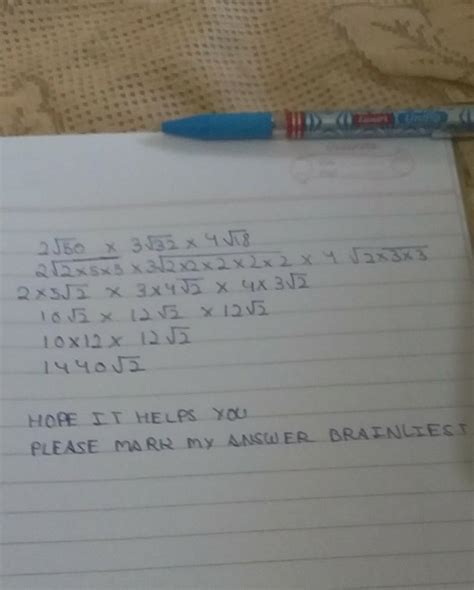 Luxor Uniflo
2√50 × 3√32 × 4√18
2√2×5×5 × 3√2×2×2×2×2 × 4 √2×3×3
2×5√2 × 3×4√2 × 4×3√2
10√2 × 12√2 × 12√2
10×12× 12√2
1440√2
HOPE IT HELPS YOU
PLEASE MARK MY ANSWER BRAINLIEST